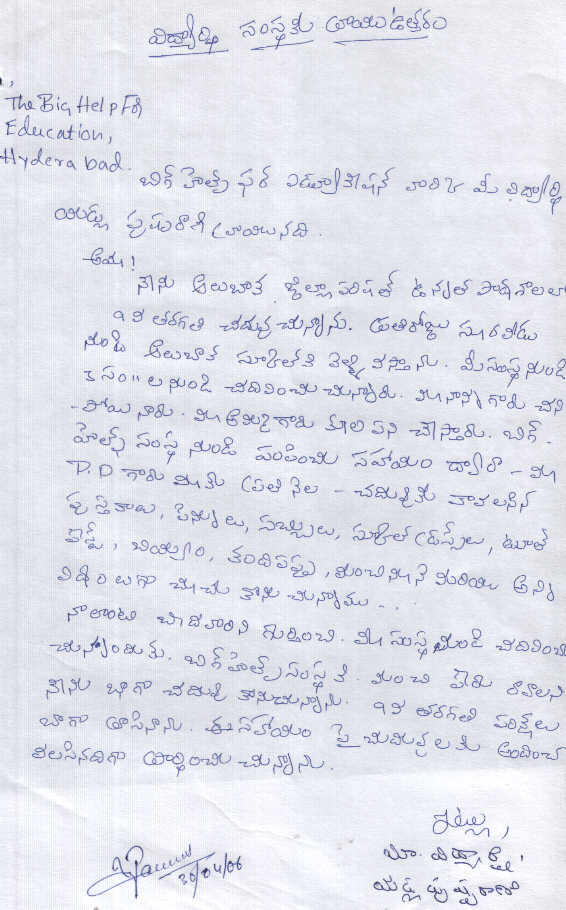 విద్యార్థి సంస్థకు వ్రాయు ఉత్తరం
The Big Help For
Education,
Hyderabad.
బిగ్ హెల్ప్ ఫర్ ఎడ్యుకేషన్ వారికి మీ విద్యార్థి
యడ్ల పుష్పరాణి వ్రాయునది.
ఆయా!
నేను ఆలుబాక జిల్లా పరిషత్ ఉన్నత పాఠశాలలో
9వ తరగతి చదువుచున్నాను. ప్రతిరోజు సూరవీడు
నుండి ఆలుబాక స్కూల్ కి వెళ్ళి వస్తాను. మీ సంస్థ నుండి
3 సం"ల నుండి చదివించుచున్నారు. మా నాన్న గారు చని
-పోయినారు. మా అమ్మ గారు కూలి పని చేస్తారు. బిగ్
హెల్ప్ సంస్థ నుండి పంపించు సహాయం ద్వారా - మా
P.D గారు మాకు ప్రతి నెల - చదువుకు కావలసిన
పుస్తకాలు, పెన్నులు, సబ్బులు, స్కూల్ డ్రస్సులు, టూత్
పేస్టు, బియ్యం, కందిపప్పు, మంచినూనె మరియు అన్ని
విధములుగా చూచు కొనుచున్నాము...
నాలాంటి బీదవారిని గుర్తించి. మా సంస్థ నుండి చదివించు
చున్నందుకు. బిగ్ హెల్ప్ సంస్థకి. మంచి పేరు రావాలని
నేను బాగా చదువు కొనుచున్నాను. 9వ తరగతి పరీక్షలు
బాగా వ్రాసినాను. ఈ సహాయం పై చదువులకు అందించ
వలసినదిగా ప్రార్థించుచున్నాను.
ఇట్లు,
మీ విద్యార్థి
యడ్ల పుష్పరాణి
30/04/06